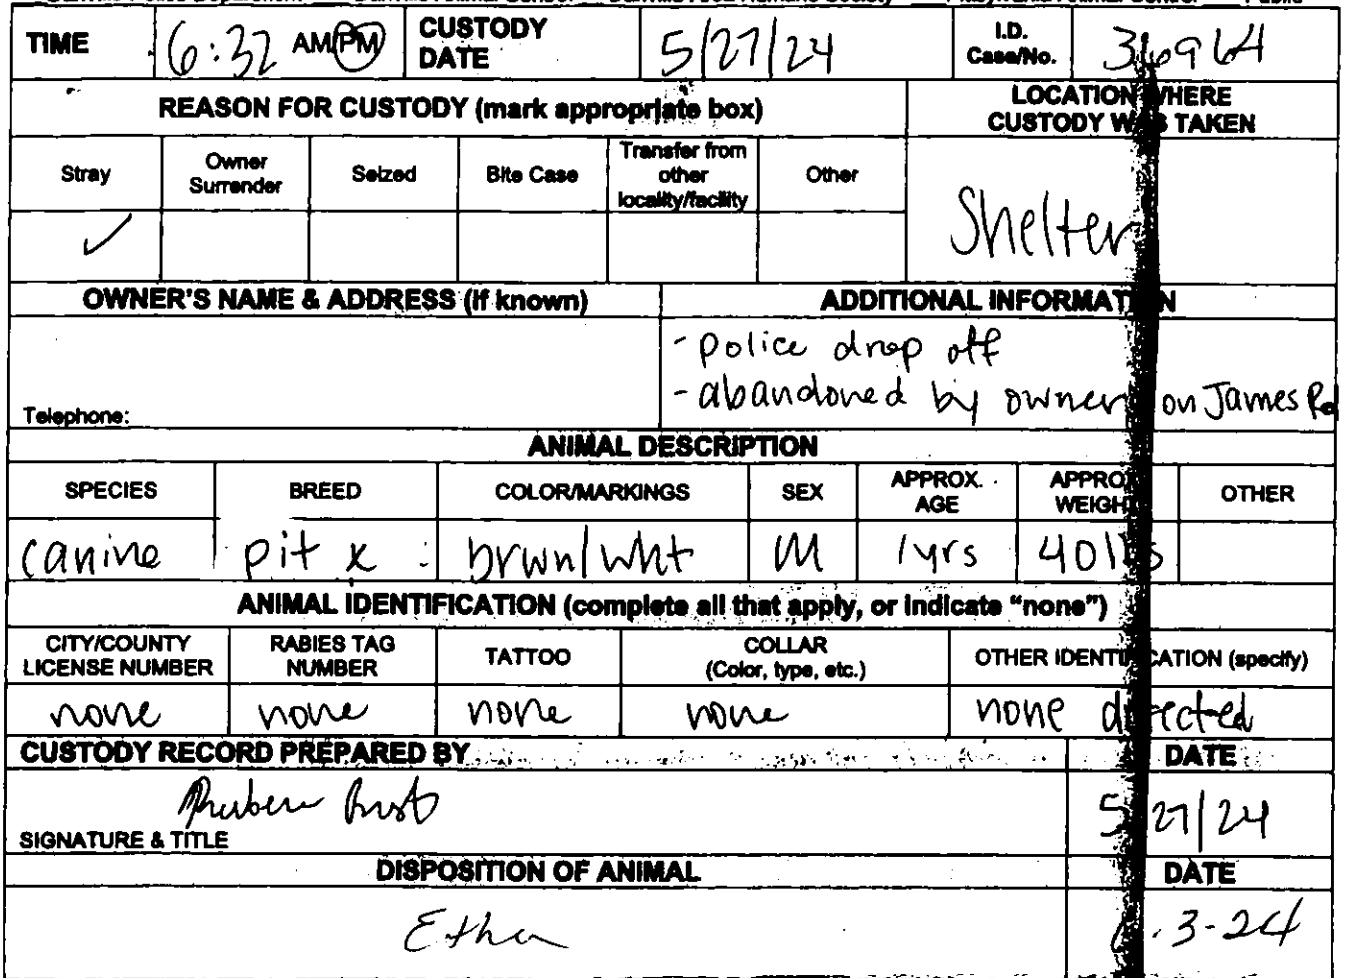 TIME 6:32 AM/PM CUSTODY DATE 5/27/24 I.D. Case/No. 36964
REASON FOR CUSTODY (mark appropriate box) LOCATION WHERE CUSTODY WAS TAKEN
Stray Owner Surrender Seized Bite Case Transfer from other locality/facility Other
✓ Shelter
OWNER'S NAME & ADDRESS (if known) ADDITIONAL INFORMATION
- police drop off
- abandoned by owner on James Rd
Telephone:
ANIMAL DESCRIPTION
SPECIES BREED COLOR/MARKINGS SEX APPROX. AGE APPROX. WEIGHT OTHER
canine pit x brwn/wht M 1yrs 40lbs
ANIMAL IDENTIFICATION (complete all that apply, or indicate "none")
CITY/COUNTY LICENSE NUMBER RABIES TAG NUMBER TATTOO COLLAR (Color, type, etc.) OTHER IDENTIFICATION (specify)
none none none none none
CUSTODY RECORD PREPARED BY DATE
5/27/24
SIGNATURE & TITLE
DISPOSITION OF ANIMAL DATE
3-24